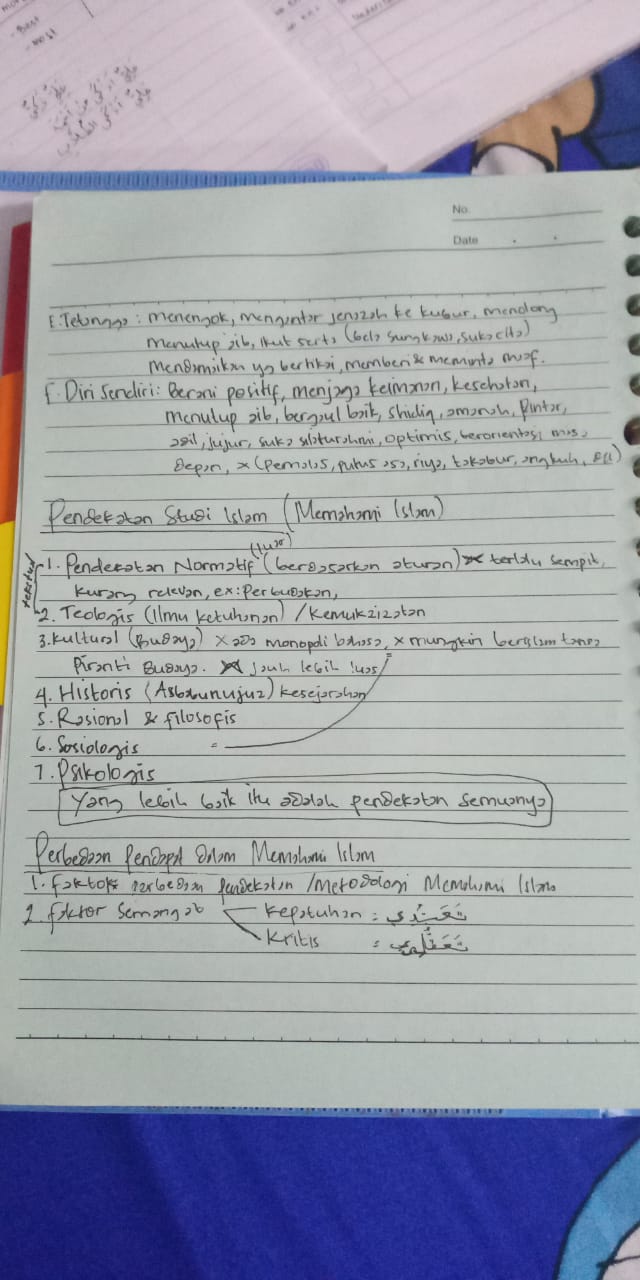 حتى أزكى
حتى من أين
حتى أزكى الطلاب
No.
Date
E. Tetangga : menengok, mengantar jenazah ke kubur, menolong
menutup aib, ikut serta (bela sungkawa, sukacita)
mendamaikan yg bertikai, memberi & meminta maaf.
F. Diri Sendiri: Berani positif, menjaga keimanan, kesehatan,
menutup aib, bergaul baik, shidiq, amanah, pintar,
adil, jujur, suka silaturahmi, optimis, berorientasi masa
depan, x (pemalas, putus asa, riya, takabur, angkuh, dll)
Pendekatan Studi Islam (Memahami Islam)
tekstual
1. Pendekatan Normatif (berdasarkan aturan) x terlalu sempit,
kurang relevan, ex: Perbudakan,
2. Teologis (Ilmu ketuhanan) / Kemukzizatan
3. Kultural (Budaya) x ada monopoli bahasa, x mungkin berislam tanpa
Piranti Budaya. Jauh lebih luas
4. Historis (Asbabunujuz) kesejarahan
5. Rasional & filosofis
6. Sosiologis =
7. Psikologis
Yang lebih baik itu adalah pendekatan semuanya
Perbedaan Pendapat dalam Memahami Islam
1. Faktor perbedaan pendekatan / Metodologi Memahami Islam
2. Faktor Semangat Kepatuhan : تَعَبُّدِي
Kritis : تَعَقُّلِي